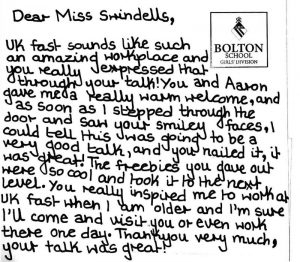 Dear Miss Swindells,
BOLTON
SCHOOL
GIRLS' DIVISION
UK fast sounds like such
an amazing workplace and
you really expressed that
through your talk! You and Aaron
gave me a really warm welcome, and
as soon as I stepped through the
door and saw your smiley faces, I
could tell this was going to be a
very good talk, and you nailed it, it
was great! The freebies you gave out
were so cool and took it to the next
level. You really inspired me to work at
UK fast when I am older and I'm sure
I'll come and visit you or even work
there one day. Thankyou very much,
your talk was great!